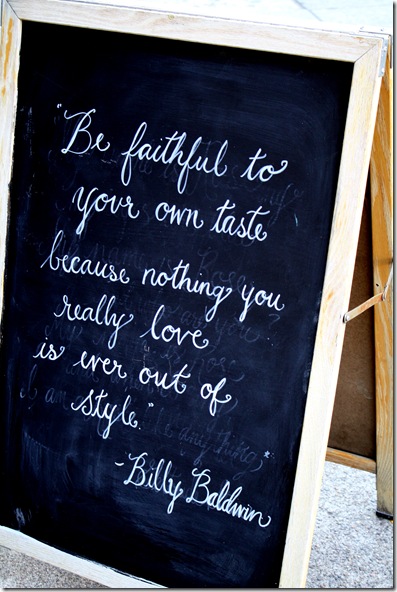 "Be faithful to
your own taste
because nothing you
really love
is ever out of
style."
-Billy Baldwin